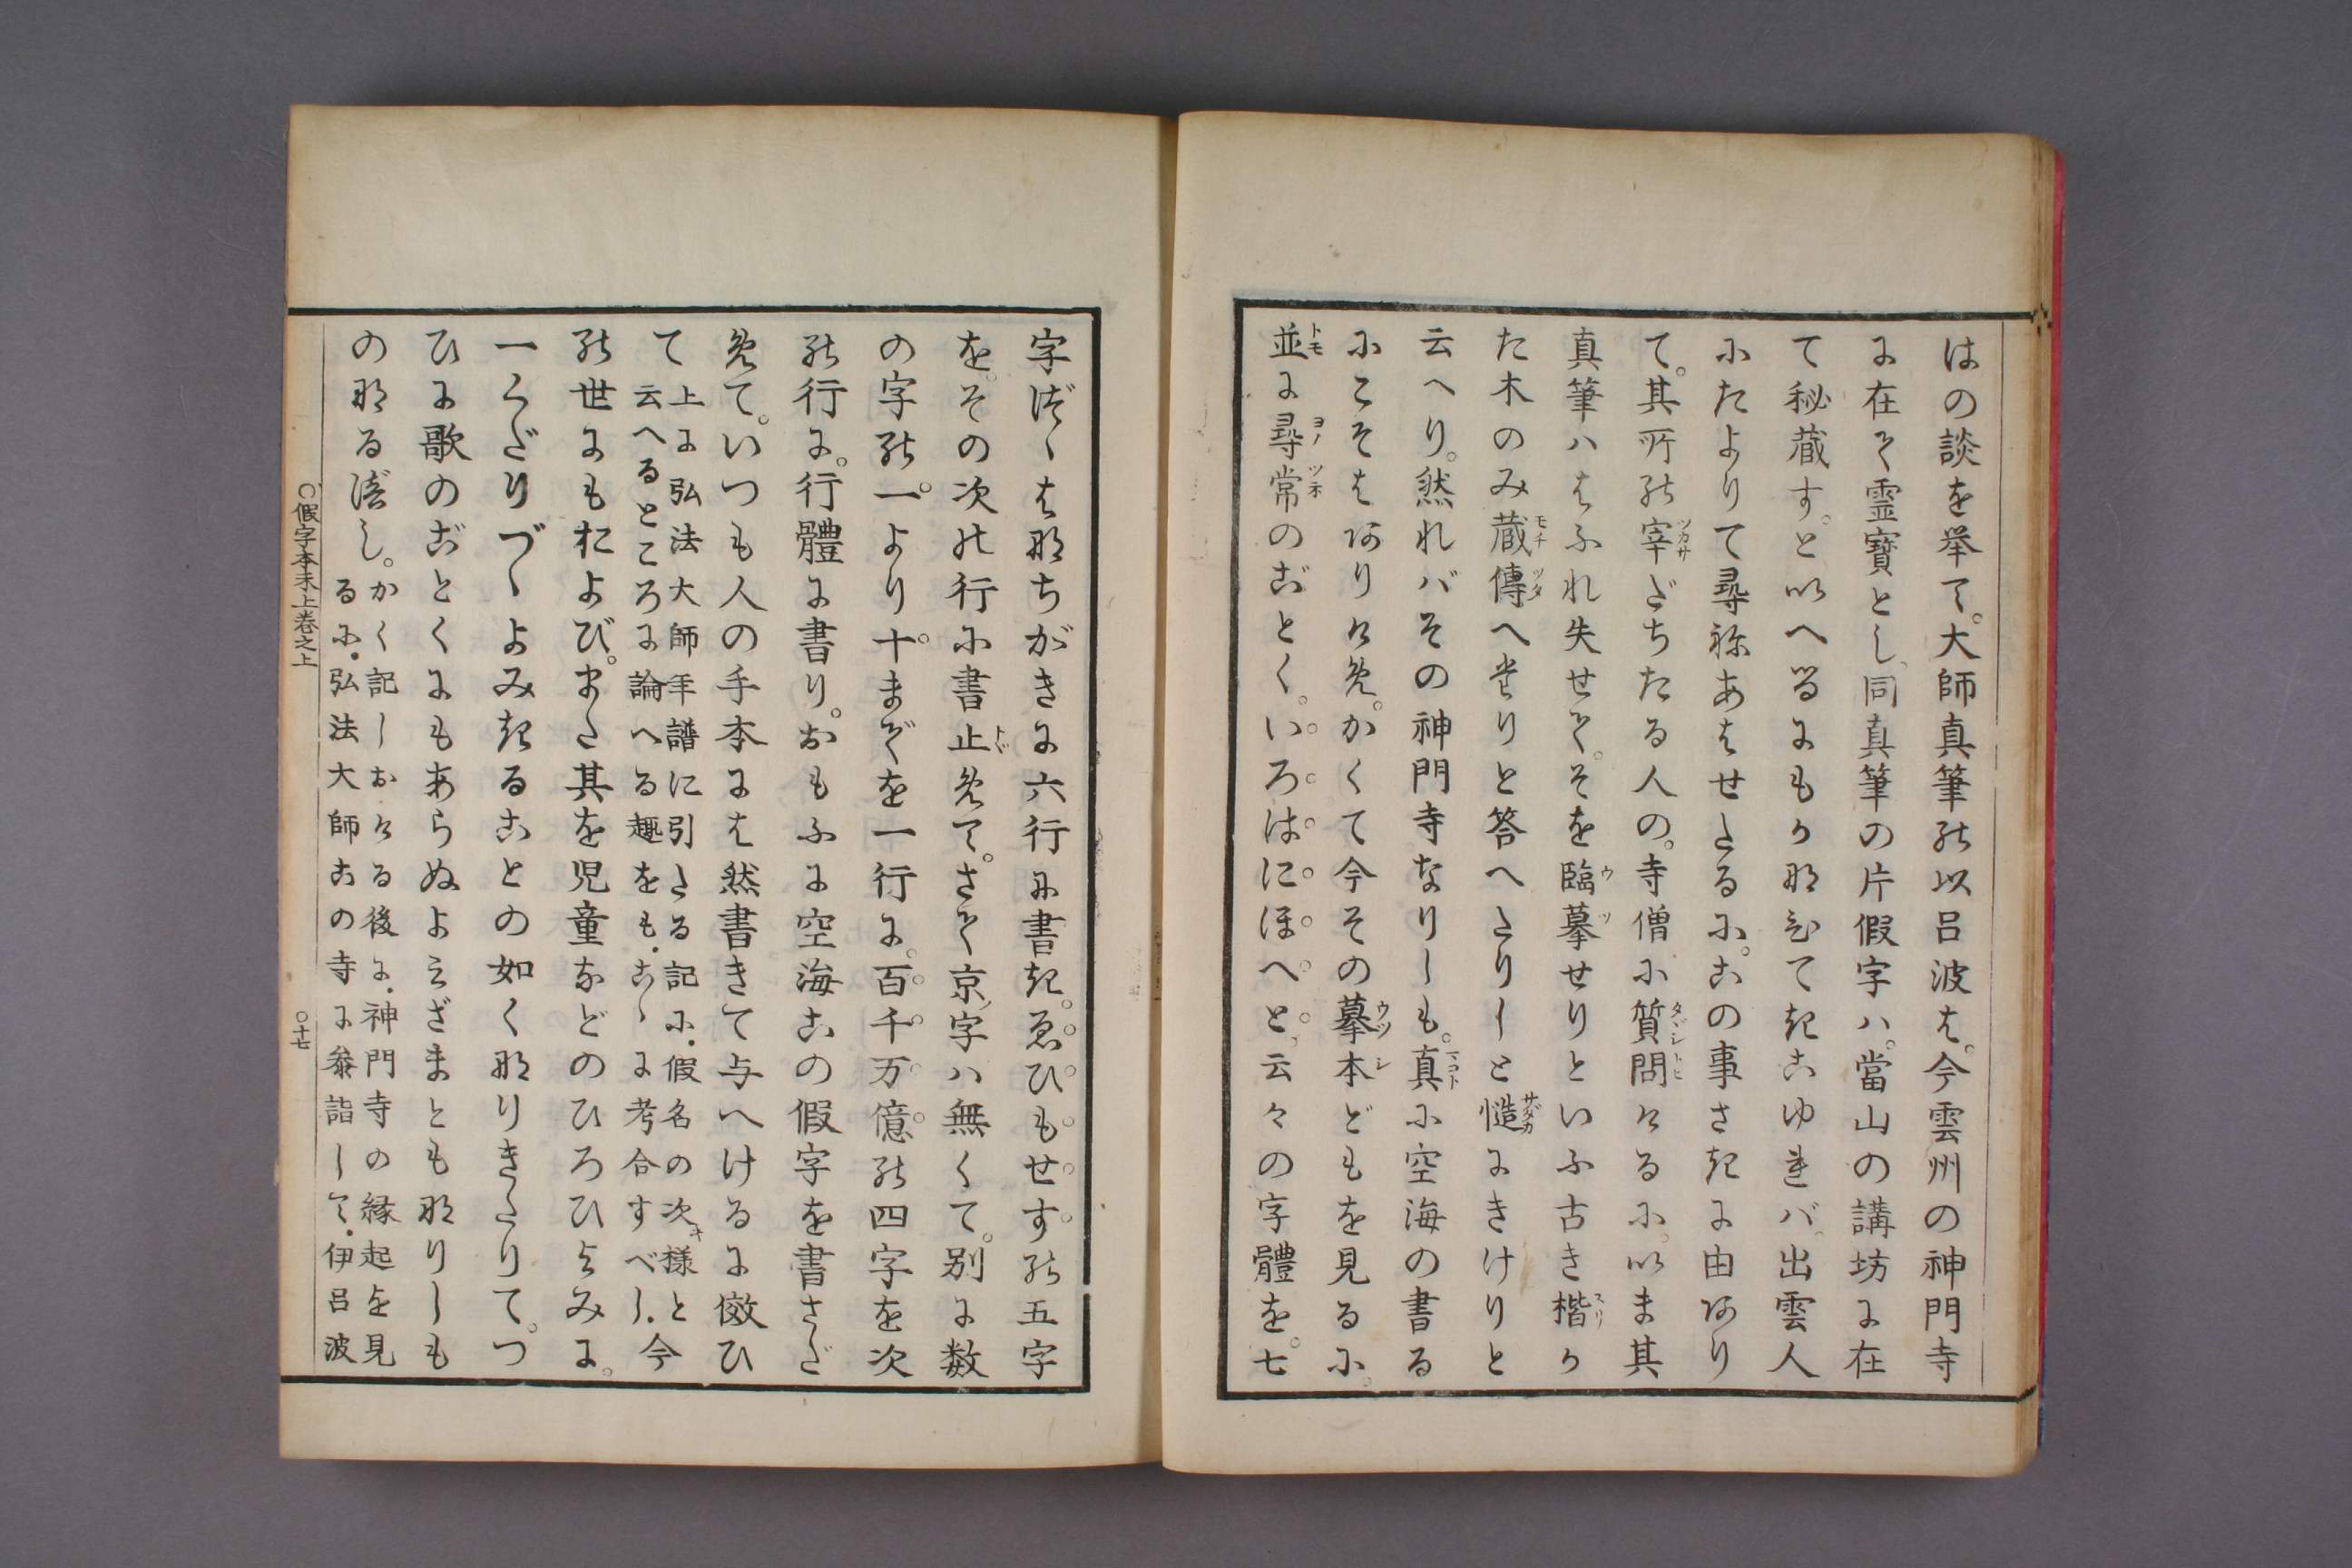 はの談を挙て。大師真筆の以呂波は。今雲州の神門寺
に在て霊寶とし、同真筆の片假字ハ。當山の講坊に在
て秘蔵す。と以へるにもか那ひてきこゆれバ。出雲人
にたよりて尋祢あはせたるに。この事さきに由あり
て。其所の宰だちたる人の。寺僧に質問けるに。以ま其
真筆ハはふれ失せて。そを臨摹せりといふ古き楷か
た木のみ蔵傳へ来りと答へたりしと慥にきけりと
云へり。然れバその神門寺なりしも。真に空海の書る
にこそはありけめ。かくて今その摹本どもを見るに。
並に尋常のごとく。いろはにほへと。云々の字體を。七
字づゝはなちがきに六行に書き。ゑひもせすの五字
を。その次の行に書止めて。さて京ノ字ハ無くて。別に数
の字の。一より十までを一行に。百千万億の四字を次
の行に。行體に書り。おもふに空海この假字を書さだ
めて。いつも人の手本には然書きて与へけるに倣ひ
て
上に弘法大師年譜に引たる記に.假名の次キ様と
云へるところに論へる趣をも.こゝに考合すべし.
今
の世にもおよび。また其を児童などのひろひよみに。
一くだりづゝよみきることの如く那りきたりて。つ
ひに歌のごとくにもあらぬよミざまとも那りしも
の那るべし。
かく記しおける後に.神門寺の縁起を見
るに.弘法大師この寺に叅詣して.伊呂波
○假字本末上巻之上
○十七